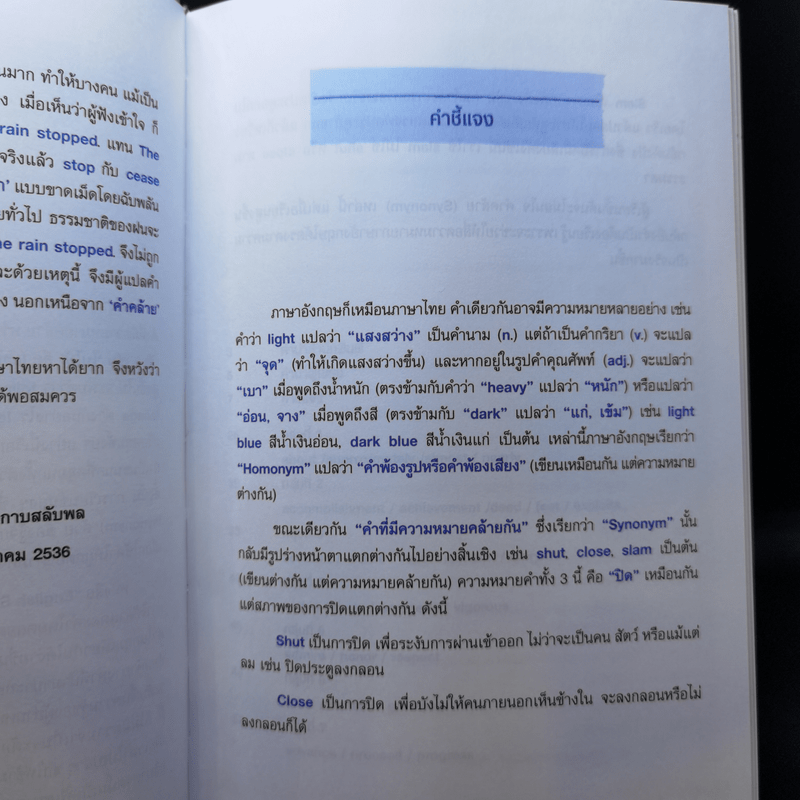 นมาก ทำให้บางคน แม้เป็น
ง เมื่อเห็นว่าผู้ฟังเข้าใจ ก็
rain stopped. แทน The
จริงแล้ว stop กับ cease
า' แบบขาดเม็ดโดยฉับพลัน
ยทั่วไป ธรรมชาติของฝนจะ
he rain stopped. จึงไม่ถูก
ะด้วยเหตุนี้ จึงมีผู้แปลคำ
ง นอกเหนือจาก 'คำคล้าย'
ษาไทยหาได้ยาก จึงหวังว่า
ด้พอสมควร
กาบสลับพล
าคม 2536
คำชี้แจง
ภาษาอังกฤษก็เหมือนภาษาไทย คำเดียวกันอาจมีความหมายหลายอย่าง เช่น
คำว่า light แปลว่า "แสงสว่าง" เป็นคำนาม (n.) แต่ถ้าเป็นคำกริยา (v.) จะแปล
ว่า "จุด" (ทำให้เกิดแสงสว่างขึ้น) และหากอยู่ในรูปคำคุณศัพท์ (adj.) จะแปลว่า
"เบา" เมื่อพูดถึงน้ำหนัก (ตรงข้ามกับคำว่า "heavy" แปลว่า "หนัก") หรือแปลว่า
"อ่อน, จาง" เมื่อพูดถึงสี (ตรงข้ามกับ "dark" แปลว่า "แก่, เข้ม") เช่น light
blue สีน้ำเงินอ่อน, dark blue สีน้ำเงินแก่ เป็นต้น เหล่านี้ภาษาอังกฤษเรียกว่า
"Homonym" แปลว่า "คำพ้องรูปหรือคำพ้องเสียง" (เขียนเหมือนกัน แต่ความหมาย
ต่างกัน)
ขณะเดียวกัน "คำที่มีความหมายคล้ายกัน" ซึ่งเรียกว่า "Synonym" นั้น
กลับมีรูปร่างหน้าตาแตกต่างกันไปอย่างสิ้นเชิง เช่น shut, close, slam เป็นต้น
(เขียนต่างกัน แต่ความหมายคล้ายกัน) ความหมายคำทั้ง 3 นี้ คือ "ปิด" เหมือนกัน
แต่สภาพของการปิดแตกต่างกัน ดังนี้
Shut เป็นการปิด เพื่อระงับการผ่านเข้าออก ไม่ว่าจะเป็นคน สัตว์ หรือแม้แต่
ลม เช่น ปิดประตูลงกลอน
Close เป็นการปิด เพื่อบังไม่ให้คนภายนอกเห็นข้างใน จะลงกลอนหรือไม่
ลงกลอนก็ได้